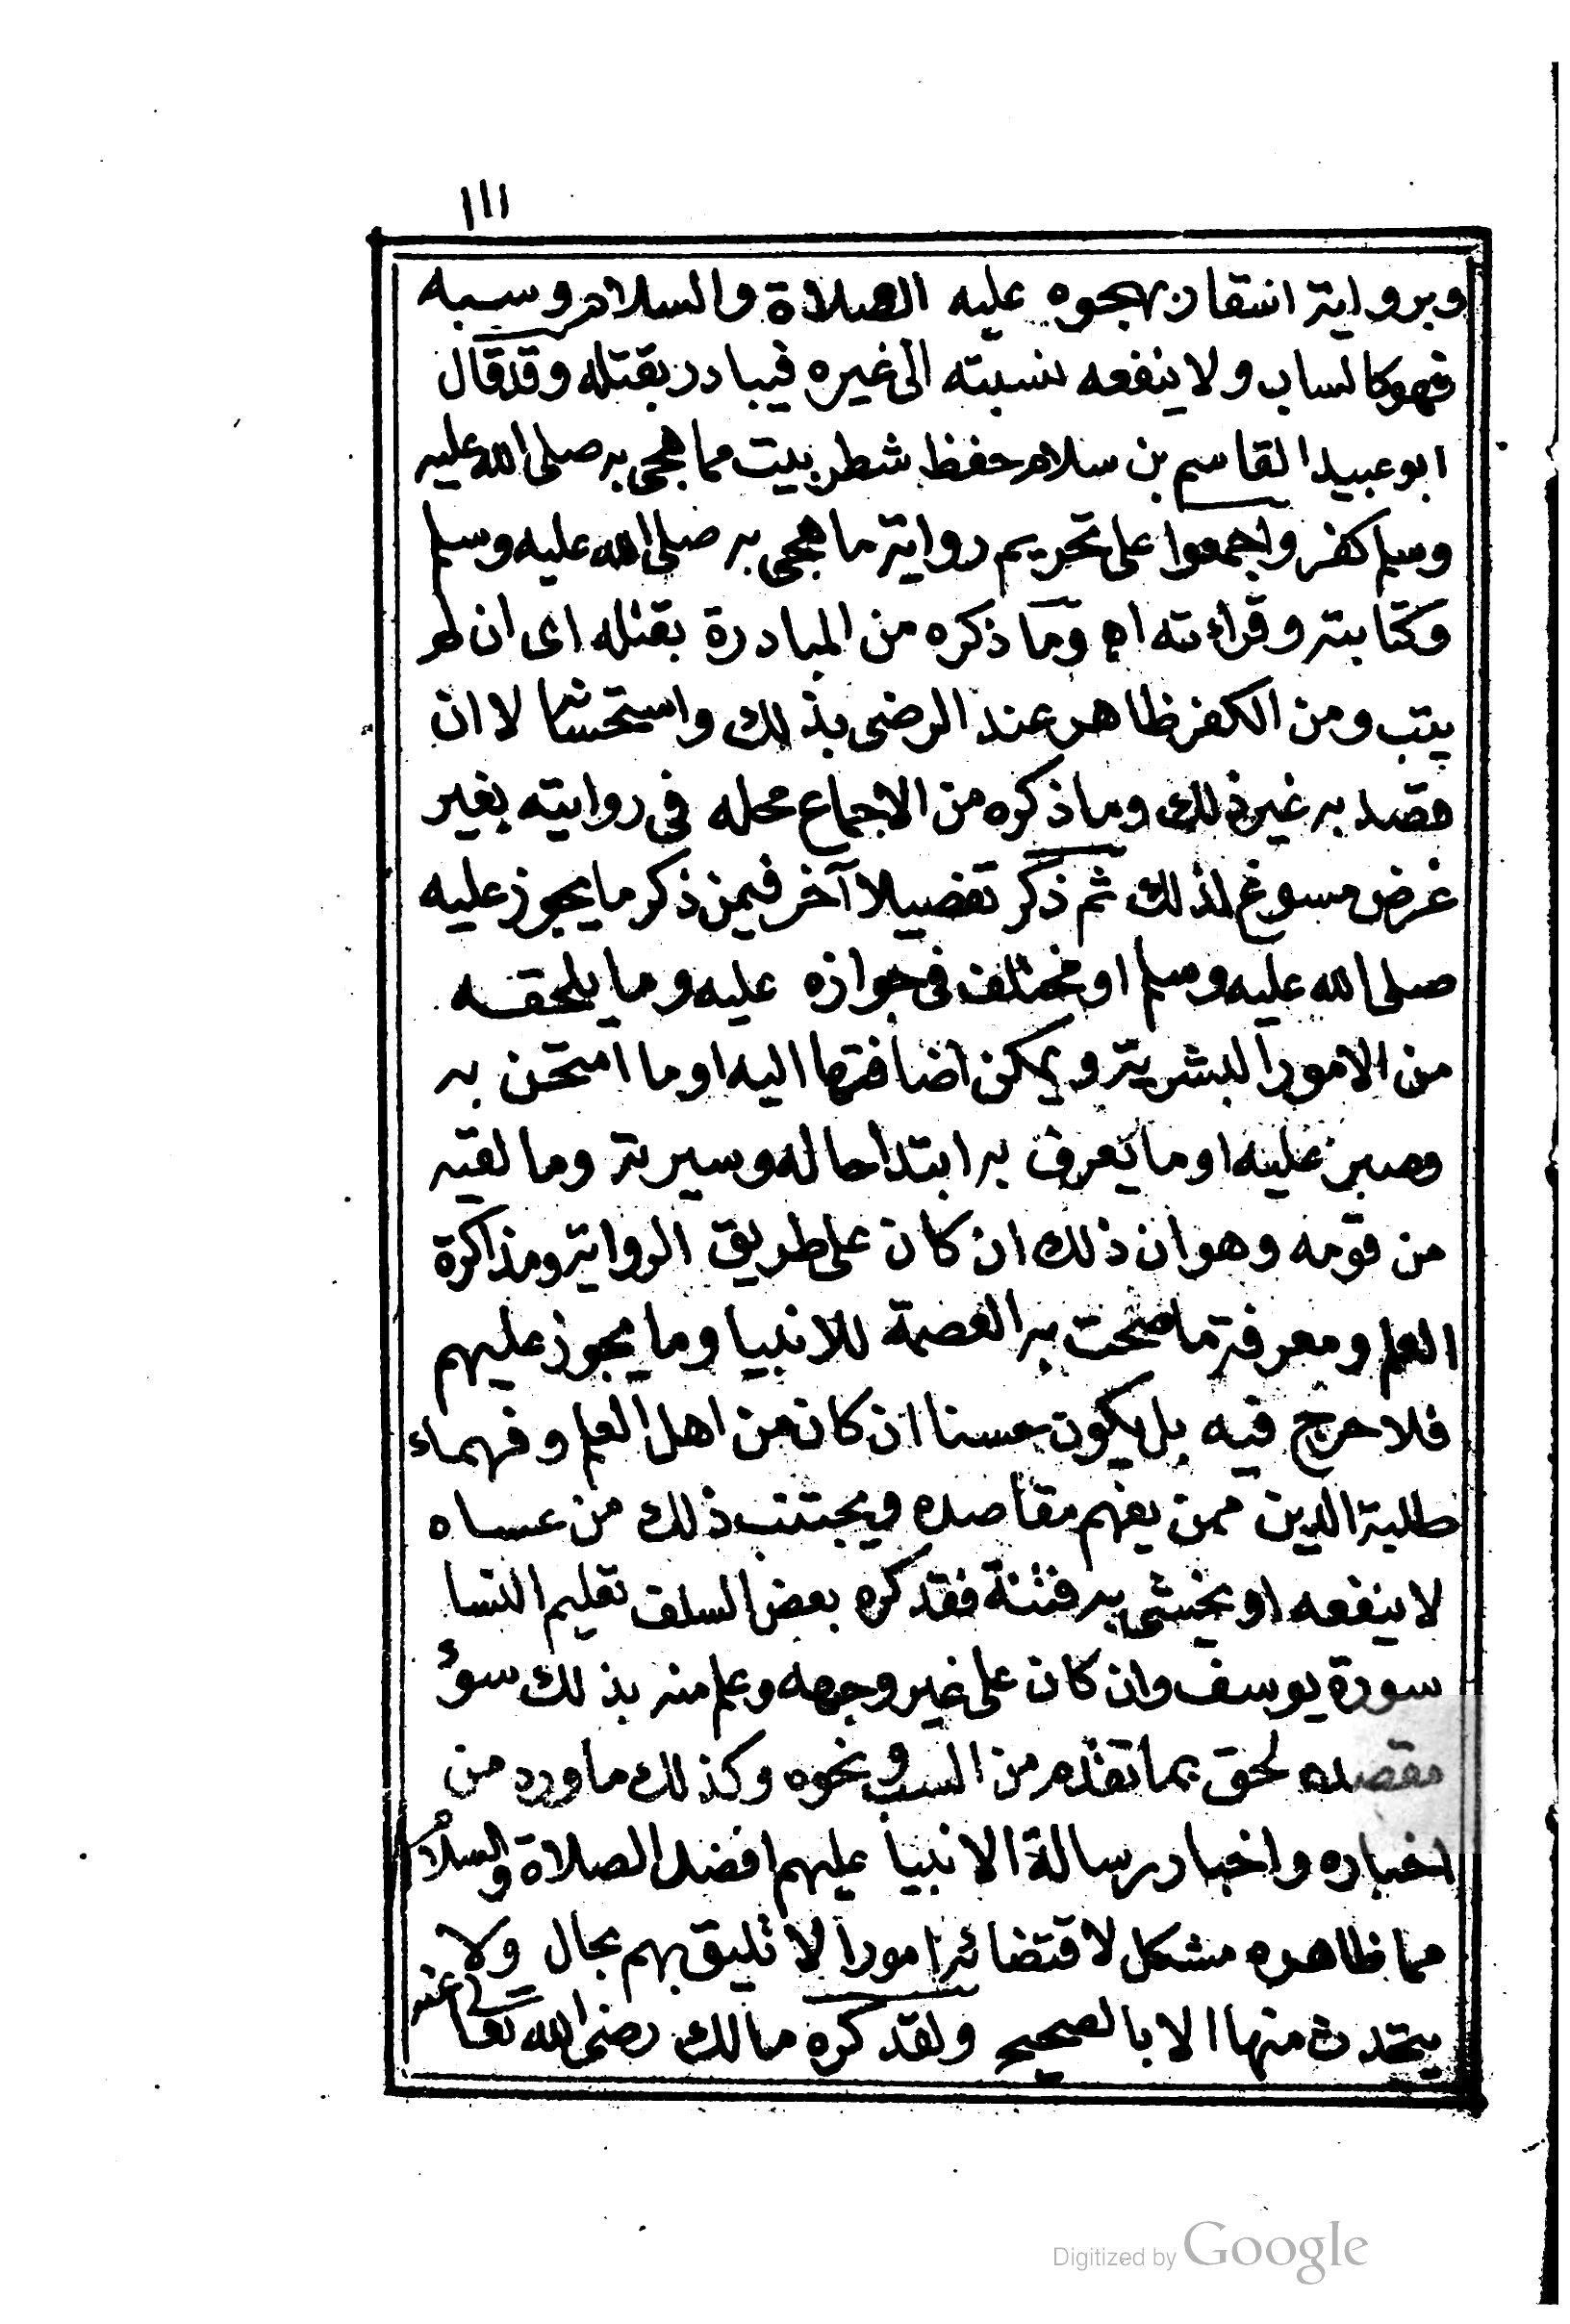 ١١١
وبرواية اشعار بهجوه عليه الصلاة والسلام وسبه
فهو كالساب ولا ينفعه نسبته الى غيره فيبادر بقتله وقد قال
ابو عبيد القاسم بن سلام حفظ شطر بيت مما هجى به صلى الله عليه
وسلم كفر واجمعوا على تحريم رواية ما هجى به صلى الله عليه وسلم
وكتابته وقراءته اه وما ذكره من المبادرة بقتله اى ان لم
يتب ومن الكفر ظاهر عند الرضى بذلك واستحسانه لا ان
قصد به غير ذلك وما ذكره من الاجماع محله فى روايته بغير
غرض مسوغ لذلك ثم ذكر تفصيلا آخر فيمن ذكر ما يجوز عليه
صلى الله عليه وسلم او مختلف فى جوازه عليه وما يلحقه
من الامور البشرية ويمكن اضافتها اليه او ما امتحن به
وصبر عليه او ما يعرف به ابتدا حاله وسيرته وما لقيه
من قومه وهو ان ذلك ان كان على طريق الرواية ومذاكرة
العلم ومعرفة ما صحت به العصمة للانبيا وما يجوز عليهم
فلا حرج فيه بل يكون حسنا ان كان من اهل العلم وفهماء
طلبة الدين ممن يفهم مقاصده ويجتنب ذلك من عساه
لا ينفعه او يخشى به فتنة فقد كره بعض السلف تعليم النسا
سورة يوسف وان كان على غير وجهه وعلم منه بذلك سوؤ
مقصده لحق بما تقدم من السب ونحوه وكذلك ما ورد من
اخباره واخبار رسالة الانبيا عليهم افضل الصلاة والسلام
مما ظاهره مشكل لاقتضائه امورا لا تليق بهم بحال ولا
يتحدث منها الا بالصحيح ولقد كره مالك رضى الله تعالى عنه
Digitized by Google